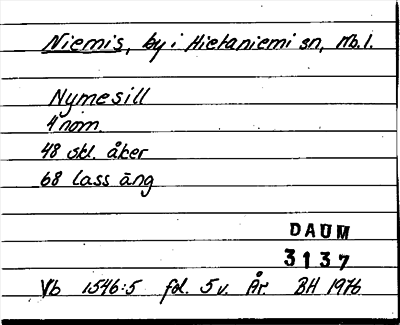 Niemis, by i Hietaniemi sn, Nb.l.
Nymesill
4 nom.
48 skl. åker
68 lass äng
DAUM
3137
Vb 1546:5 fol. 5v. År BH 1976.